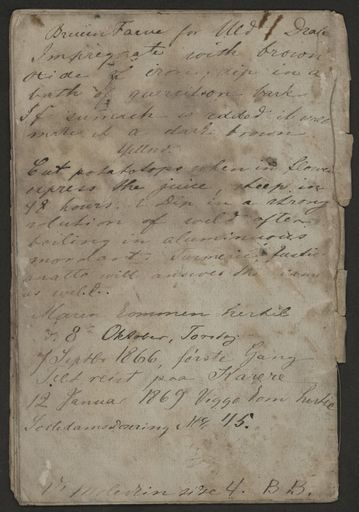 Bruun Farve for Uld
Impregnate with brown
oxide of iron, dip in a
bath of quercitron bark
If sumach is added it will
make it a dark brown
Yellow
Cut potatotops when in flower
express the juice, steep in
48 hours. Dip in a strong
solution of weld after
boiling in aluminuous
mordant. Turmeric, fustic
anatto will answer the same
as weld.
Maren kommen hertil
8 Oktober, Torsdag
7 Septbr 1866, første Gang
reist paa
12 Januar 1867 Viggo kom hertil
No 45.
size 4. B B.